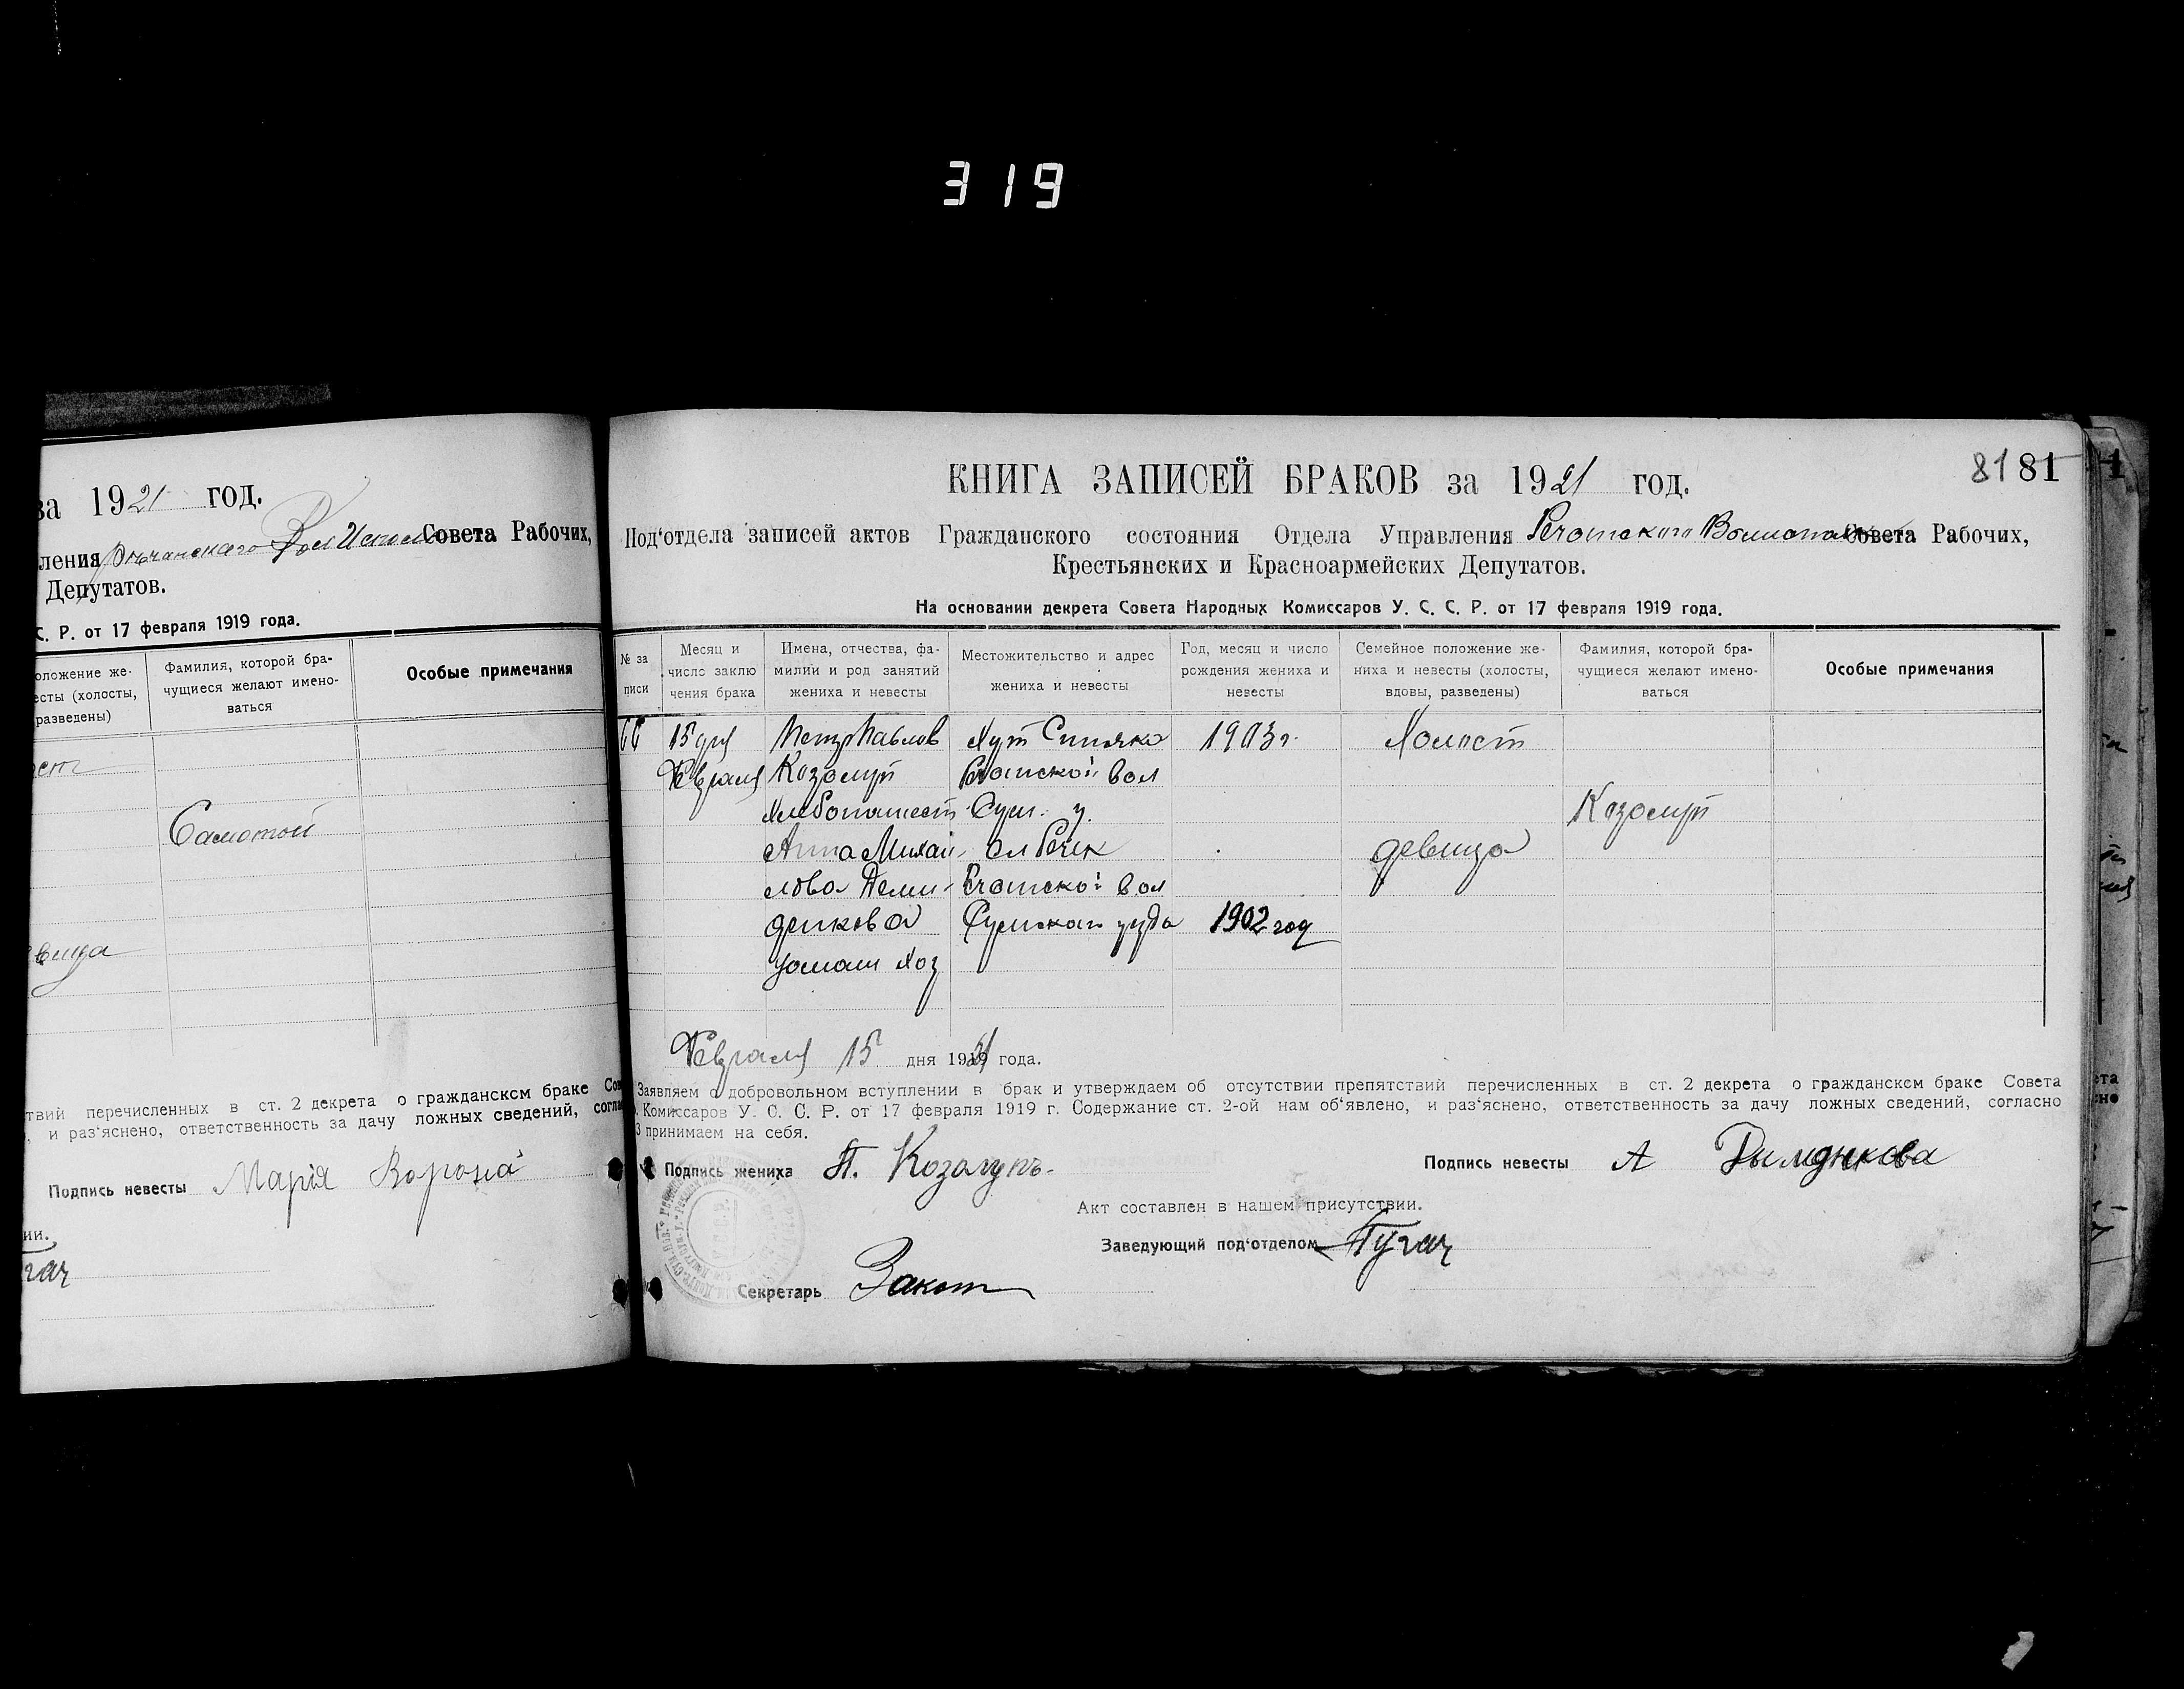 319
за 1921 год.
ления Речанскаго Совета Рабочих,
Депутатов.
С. Р. от 17 февраля 1919 года.
оложение же-
есты (холосты,
разведены)
Фамилия, которой бра-
чущиеся желают имено-
ваться
Особые примечания
Самотой
вица
твий перечисленных в ст. 2 декрета о гражданском браке Сов
и раз‘яснено, ответственность за дачу ложных сведений, согла
Подпись невесты Марія Ворона
ии.
гач
81 81
КНИГА ЗАПИСЕЙ БРАКОВ за 1921 год.
Под‘отдела записей актов Гражданского состояния Отдела Управления Совета Рабочих,
Крестьянских и Красноармейских Депутатов.
На основании декрета Совета Народных Комиссаров У. С. С. Р. от 17 февраля 1919 года.
№ за
писи
Месяц и
число заклю
чения брака
Имена, отчества, фа-
милии и род занятий
жениха и невесты
Местожительство и адрес
жениха и невесты
Год, месяц и число
рождения жениха и
невесты
Семейное положение же-
ниха и невесты (холосты,
вдовы, разведены)
Фамилия, которой бра-
чущиеся желают имено-
ваться
Особые примечания
66 15 дня Петр Павлов Хут Синяка 1903 г. Холост
Февраля Козолуп Речанской вол
Хлебопашест Сум. у. Козолуп
Анна Михай- девица
лова Деми- Речанской вол
денкова Сумскаго уезда 1902 год
домаш хоз
Февраля 15 дня 1921 года.
Заявляем о добровольном вступлении в брак и утверждаем об отсутствии препятствий перечисленных в ст. 2 декрета о гражданском браке Совета
Комиссаров У. С. С. Р. от 17 февраля 1919 г. Содержание ст. 2-ой нам об‘явлено, и раз‘яснено, ответственность за дачу ложных сведений, согласно
3 принимаем на себя.
Подпись жениха П. Козалупъ Подпись невесты А
Акт составлен в нашем присутствии.
Заведующий под‘отделом Пугач
Секретарь